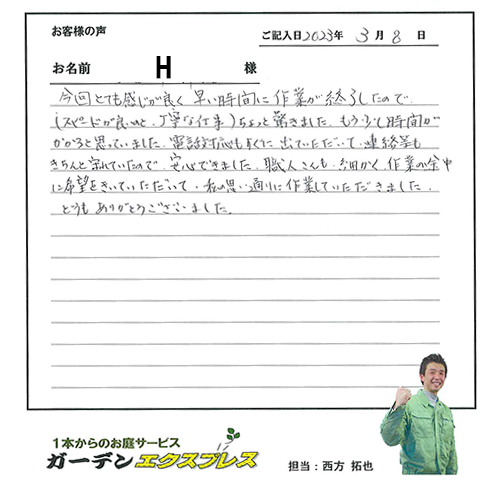 お客様の声
ご記入日2023年 3月 8日
お名前 H 様
今回とても感じが良く 早い時間に作業が終了したので
(スピードが良いのと、丁寧な仕事)ちょっと驚きました。もう少し時間が
かかると思っていました。電話対応もすぐに出ていただいて、連絡等も
きちんと していたので、安心できました。職人さんも、細かく、作業の途中
に希望をきいていただいて、私の思い通りに作業していただきました。
どうもありがとうございました。
1本からのお庭サービス
ガーデンエクスプレス
担当：西方 拓也